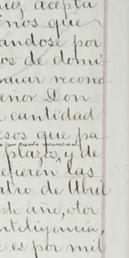 uez acepta
mos que
andose por
os de domi-
nuar recono
eñor Don
a cantidad
esos que pa
plazos, y de
efieren las
atro de Abril
este año, otor
inteligencia,
e es por mil